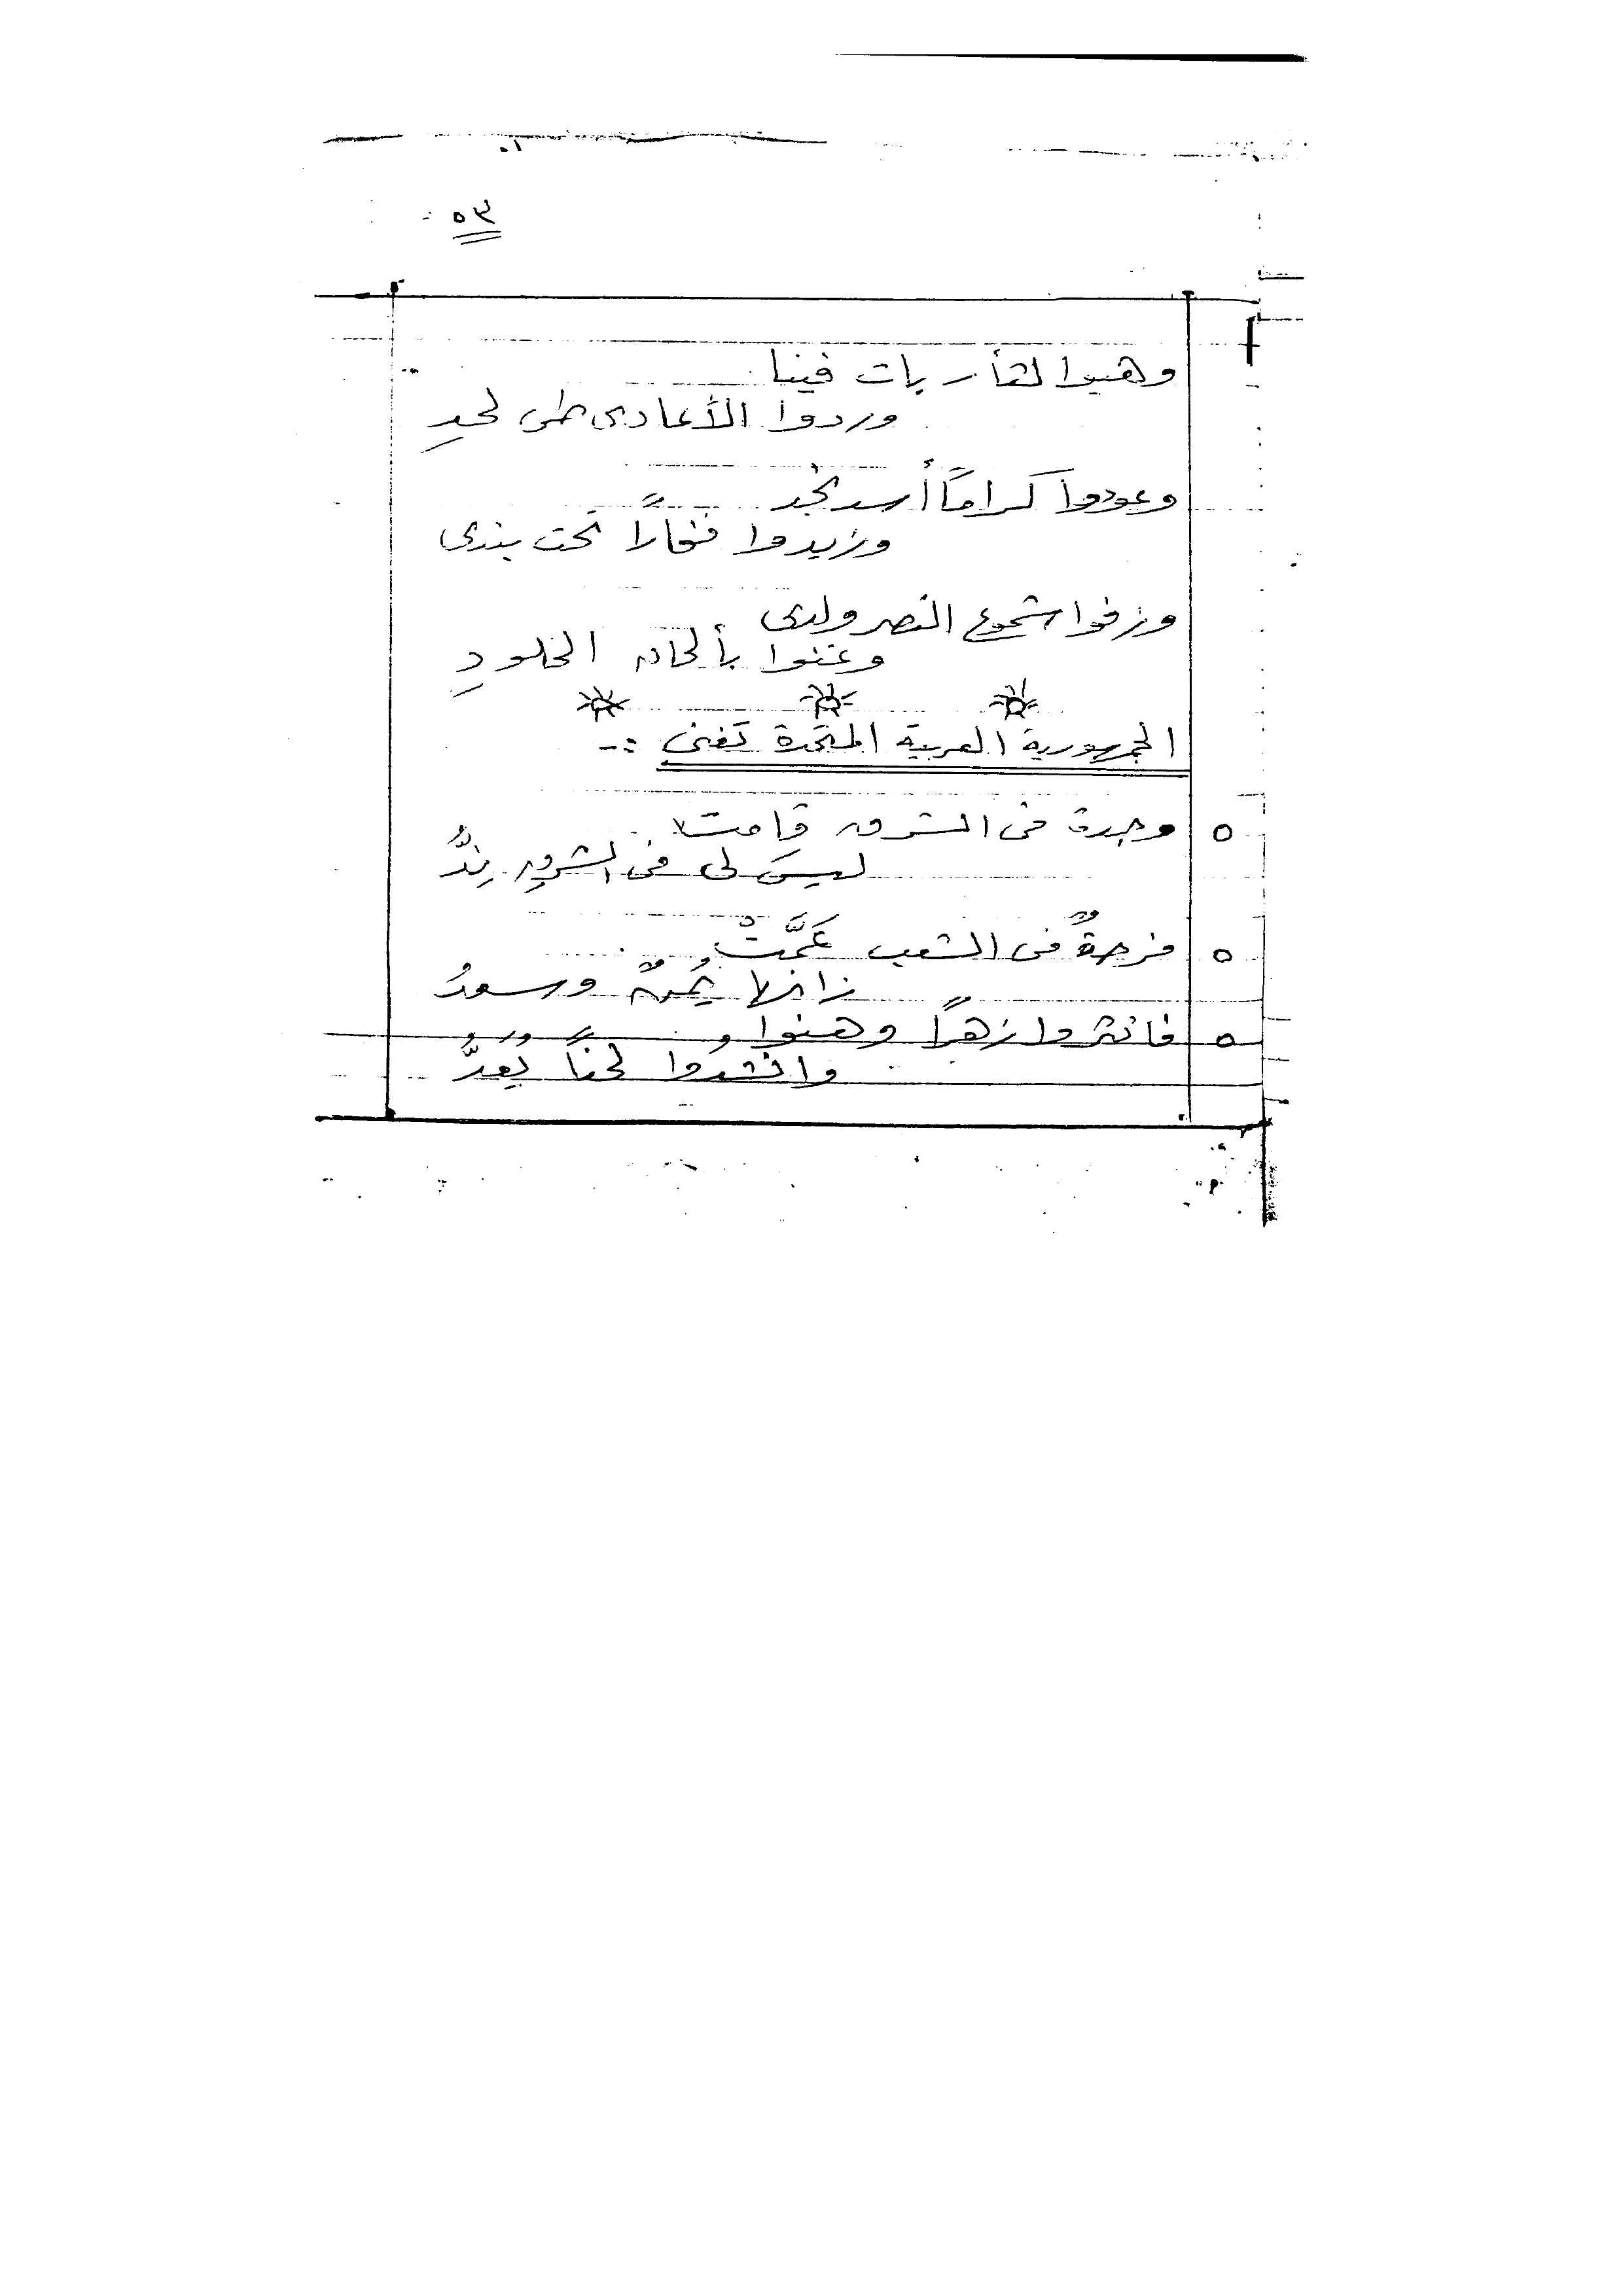 ٥٣
وهبوا لثأر بات فينا
وردوا الأعادى طى لحدِ
وعودوا كرامًا أسد نجد
وزيدوا فخارًا تحت بندى
وزفوا شموع النصر ولدى
وغنوا بألحان الخلودِ
الجمهورية العربية المتحدة تغنى :-
وحدة فى الشرق قامت
ليسَ لى فى الشرقِ نِدُّ
فرحةٌ فى الشعب عَمَّتْ
زانها يُمنٌ وسعدُ
فانثروا زهرًا وهنوا
وانشدوا لحنًا يُعدُّ